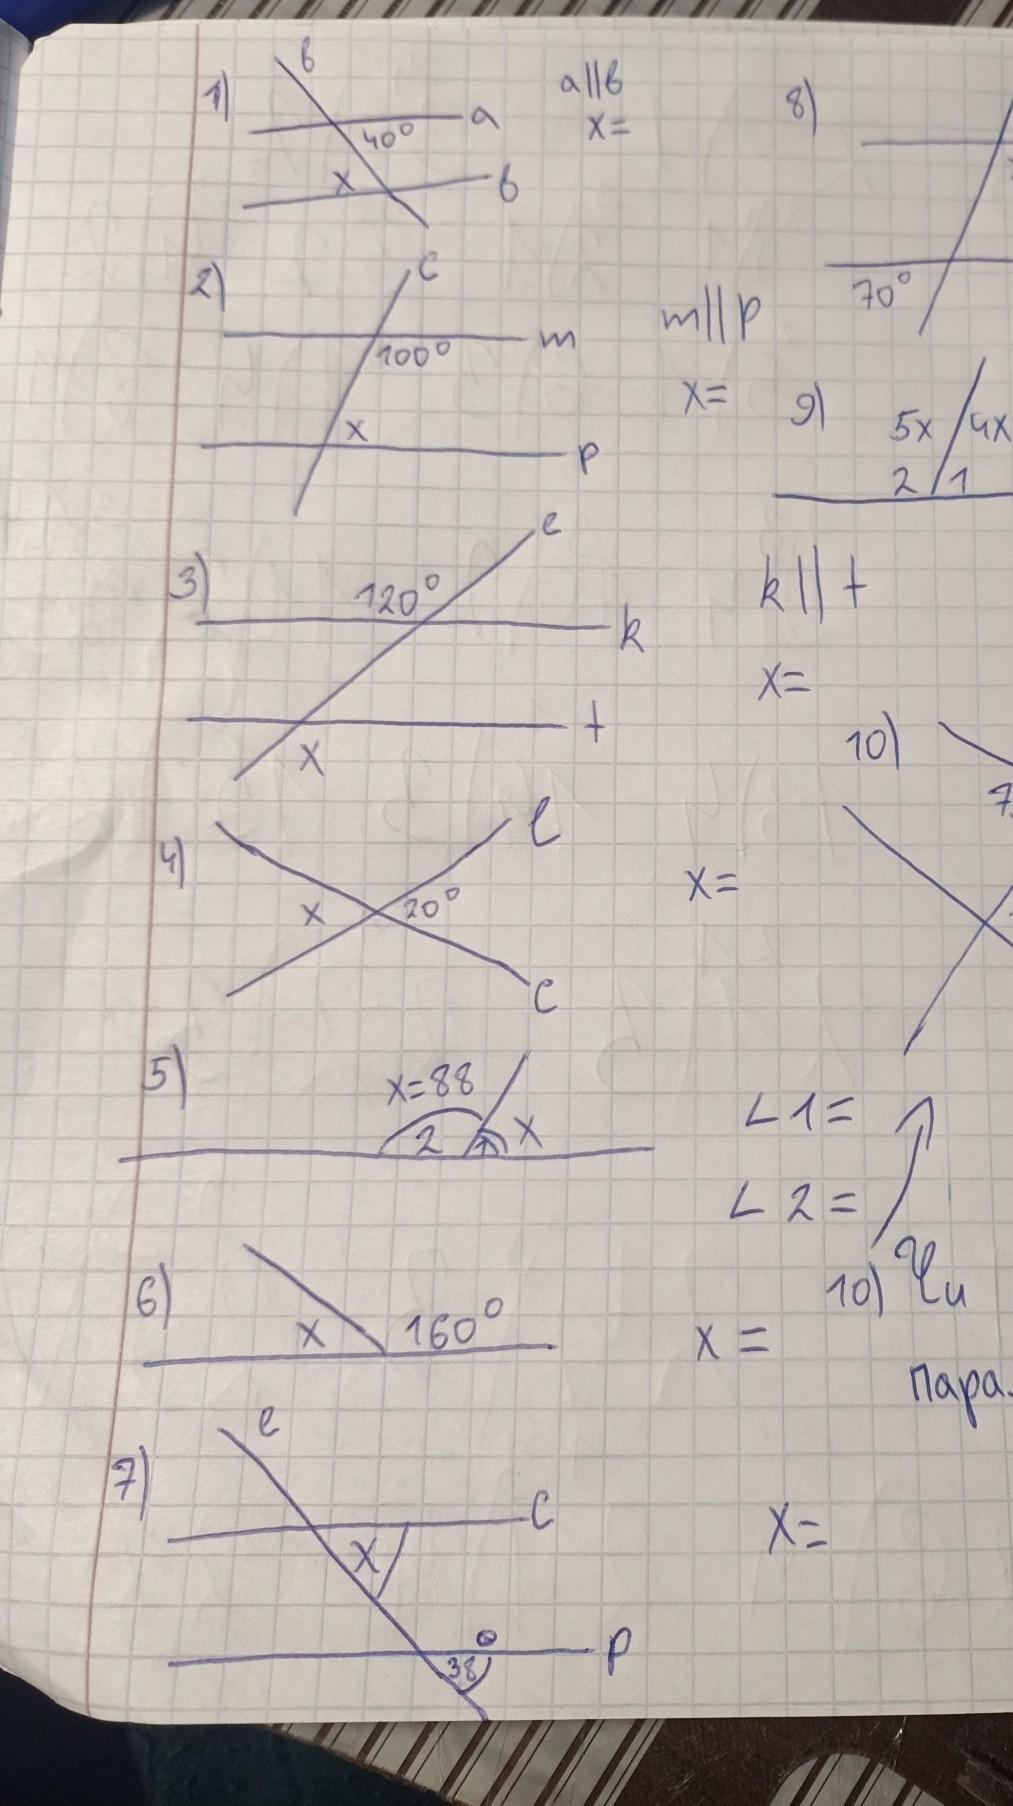 1) в
a
40°
x
в
a||в
x=
2) c
m
100°
x
p
m||p
x=
3) e
120°
k
t
x
k||t
x=
4) l
x
20°
c
x=
5) x=88
2
x
∠1=
∠2=
6) x
160°
x=
7) e
c
x
38°
p
x=
8)
70°
9) 5x 4x
2 1
10)
10) Чи
пара